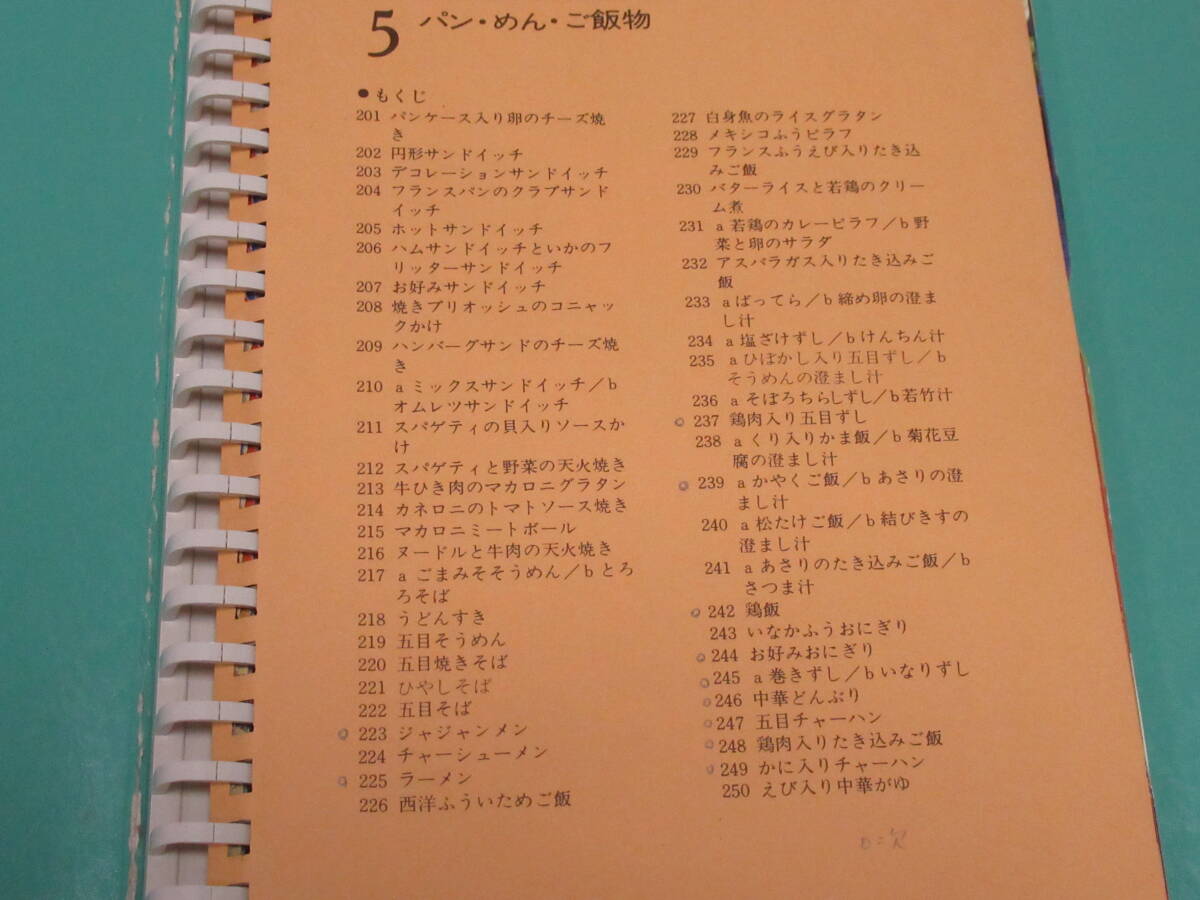 5 パン・めん・ご飯物
●もくじ
201 パンケース入り卵のチーズ焼
き
202 円形サンドイッチ
203 デコレーションサンドイッチ
204 フランスパンのクラブサンド
イッチ
205 ホットサンドイッチ
206 ハムサンドイッチといかのフ
リッターサンドイッチ
207 お好みサンドイッチ
208 焼きブリオッシュのコニャッ
クかけ
209 ハンバーグサンドのチーズ焼
き
210 aミックスサンドイッチ/b
オムレツサンドイッチ
211 スパゲティの貝入りソースか
け
212 スパゲティと野菜の天火焼き
213 牛ひき肉のマカロニグラタン
214 カネロニのトマトソース焼き
215 マカロニミートボール
216 ヌードルと牛肉の天火焼き
217 aごまみそそうめん/bとろ
ろそば
218 うどんすき
219 五目そうめん
220 五目焼きそば
221 ひやしそば
222 五目そば
223 ジャジャンメン
224 チャーシューメン
225 ラーメン
226 西洋ふういためご飯
227 白身魚のライスグラタン
228 メキシコふうピラフ
229 フランスふうえび入りたき込
みご飯
230 バターライスと若鶏のクリー
ム煮
231 a若鶏のカレーピラフ/b野
菜と卵のサラダ
232 アスパラガス入りたき込みご
飯
233 aばってら/b締め卵の澄ま
し汁
234 a塩ざけずし/bけんちん汁
235 aひぼかし入り五目ずし/b
そうめんの澄まし汁
236 aそぼろちらしずし/b若竹汁
237 鶏肉入り五目ずし
238 aくり入りかま飯/b菊花豆
腐の澄まし汁
239 aかやくご飯/bあさりの澄
まし汁
240 a松たけご飯/b結びきすの
澄まし汁
241 aあさりのたき込みご飯/b
さつま汁
242 鶏飯
243 いなかふうおにぎり
244 お好みおにぎり
245 a巻きずし/bいなりずし
246 中華どんぶり
247 五目チャーハン
248 鶏肉入りたき込みご飯
249 かに入りチャーハン
250 えび入り中華がゆ
○=欠